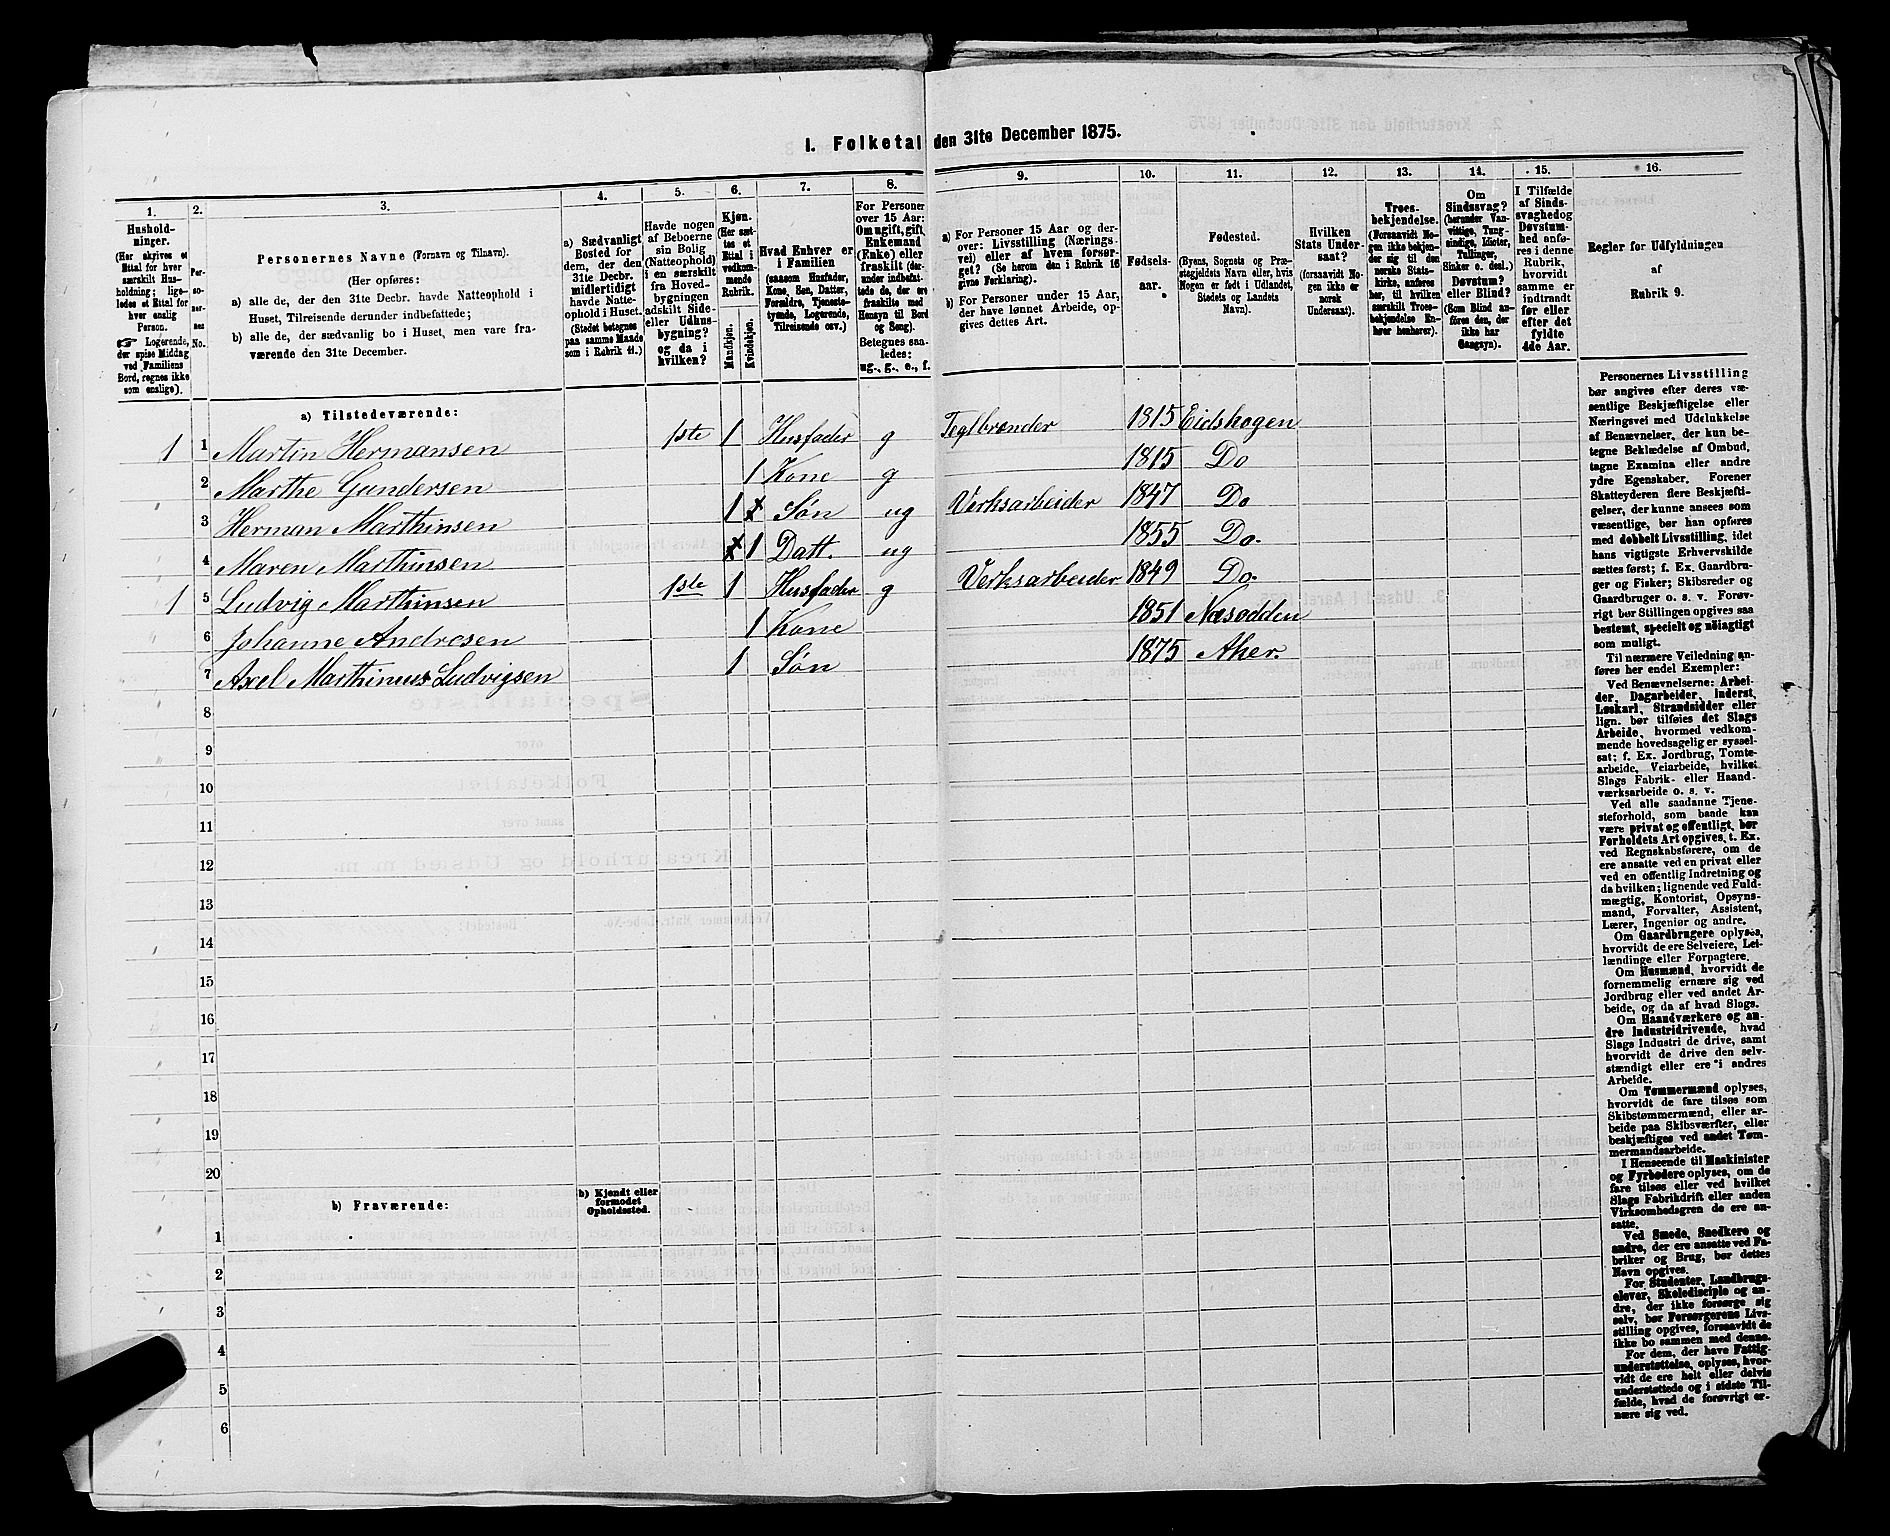 1. Folketal den 31te December 1875.
1. 2. 3. 4. 5. 6. 7. 8. 9. 10. 11. 12. 13. 14. 15. 16.
Husholdninger.
(Her skrives et
Ettal for hver
særskilt Hus-
holdning; lige-
ledes et Ettal for
hver enslig
Person.
Logerende,
der spise Middag
ved Familiens
Bord, regnes ikke
som enslige).
Per-
so-
ner-
nes
No.
Personernes Navne (Fornavn og Tilnavn).
(Her opføres:
a) alle de, der den 31te Decbr. havde Natteophold i
Huset, Tilreisende derunder indbefattede;
b) alle de, der sædvanlig bo i Huset, men vare fra-
værende den 31te December.
a) Sædvanligt
Bosted for
dem, der den
31te Decbr.
midlertidigt
havde Natte-
ophold i Huset.
(Stedet betegnes
paa samme Maade
som i Rubrik 11.)
Havde nogen
af Beboerne
sin Bolig
(Natteophold)
i en særskilt
fra Hoved-
bygningen
adskilt Side-
eller Udhus-
bygning?
og da i
hvilken?
Kjøn.
(Her sæt-
tes et
Ettal i
vedkom-
mende
Rubrik.
Mandkjøn.
Kvindekjøn.
Hvad Enhver er
i Familien
(saasom Husfader,
Kone, Søn, Datter,
Forældre, Tjeneste-
tyende, Logerende,
Tilreisende osv.)
For Personer
over 15 Aar:
Om ugift, gift,
Enkemand
(Enke) eller
fraskilt (der-
under indbefat-
tede de, der ere
fraskilte med
Hensyn til Bord
og Seng).
Betegnes saa-
ledes:
ug., g., e., f.
a) For Personer 15 Aar og der-
over: Livsstilling (Nærings-
vei) eller af hvem forsør-
get? (Se herom den i Rubrik 16
givne Forklaring).
b) For Personer under 15 Aar,
der have lønnet Arbeide, op-
gives dettes Art.
Fødsels-
aar.
Fødested.
(Byens, Sognets og Præ-
stegjeldets Navn eller, hvis
Nogen er født i Udlandet,
Stedets og Landets
Navn).
Hvilken
Stats Under-
saat?
(forsaavidt No-
gen ikke er
norsk
Undersaat).
Troes-
bekjendelse.
(Forsaavidt No-
gen ikke bekjen-
der sig til den
norske Stats-
kirke, anføres
her, til hvilken
særskilt Troes-
bekjendelse En-
hver henhører).
Om
Sindssvag?
(herunder Van-
vittige, Tung-
sindige, Idioter,
Tullinger,
Sinker o. desl.)
Døvstum?
eller Blind?
(Som Blind an-
føres den, der
ikke har
Gangsyn).
I Tilfælde
af Sinds-
svaghed og
Døvstum-
hed anfø-
res i denne
Rubrik,
hvorvidt
samme er
indtraadt
før eller
efter det
fyldte
4de Aar.
Regler for Udfyldningen
af
Rubrik 9.
a) Tilstedeværende:
1 1 Martin Hermansen 1ste 1 Husfader g Teglbrænder 1815 Eidskogen
2 Marthe Gundersen 1 Kone g 1815 Do
3 Herman Marthinsen 1 Søn ug Verksarbeider 1847 Do
4 Maren Marthinsen 1 Datt. ug 1855 Do.
1 5 Ludvig Marthinsen 1ste 1 Husfader g Verksarbeider 1849 Do.
6 Johanne Andresen 1 Kone 1851 Næsodden
7 Axel Marthinus Ludvigsen 1 Søn 1875 Aker.
8
9
10
11
12
13
14
15
16
17
18
19
20
b) Fraværende:
b) Kjendt eller
formodet
Opholdssted.
1
2
3
4
5
6
Personernes Livsstilling
bør angives efter deres væ-
sentlige Beskjæftigelse eller
Næringsvei med Udelukkelse
af Benævnelser, der kun be-
tegne Beklædelse af Ombud,
tagne Examina eller andre
ydre Egenskaber. Forener
Skatteyderen flere Beskjæfti-
gelser, der kunne ansees som
væsentlige, bør han opføres
med dobbelt Livsstilling, idet
hans vigtigste Erhvervskilde
sættes først; f. Ex. Gaardbru-
ger og Fisker; Skibsreder og
Gaardbruger o. s. v. Forøv-
rigt bør Stillingen opgives saa
bestemt, specielt og nøiagtigt
som muligt.
Til nærmere Veiledning an-
føres her endel Exempler:
Ved Benævnelserne: Arbei-
der, Dagarbeider, Inderst,
Løskarl, Strandsidder eller
lign. bør tilføies det Slags
Arbeide, hvormed vedkom-
mende hovedsagelig er syssel-
sat; f. Ex. Jordbrug, Tomte-
arbeide, Veiarbeide, hvilket
Slags Fabrik- eller Haand-
værksarbeide o. s. v.
Ved alle saadanne Tjene-
steforhold, som baade kan
være privat og offentligt, bør
Forholdets Art opgives, t. Ex.
ved Regnskabsførere, om de
ere ansatte ved en privat eller
ved en offentlig Indretning og
da hvilken; lignende ved Fuld-
mægtig, Kontorist, Opsyns-
mand, Forvalter, Assistent,
Lærer, Ingeniør og andre.
Om Gaardbrugere oplyses,
hvorvidt de ere Selveiere, Lei-
lændinge eller Forpagtere.
Om Husmænd, hvorvidt de
fornemmelig ernære sig ved
Jordbrug eller ved andet Ar-
beide, og da af hvad Slags.
Om Haandværkere og an-
dre Industridrivende, hvad
Slags Industri de drive, samt
hvorvidt de drive den selv-
stændigt eller ere i andres
Arbeide.
Om Tømmermænd oplyses,
hvorvidt de fare tilsøs som
Skibstømmermænd, eller ar-
beide paa Skibsværfter, eller
beskjæftiges ved andet Tøm-
mermandsarbeide.
I Henseende til Maskinister
og Fyrbødere oplyses, om de
fare tilsøs eller ved hvilket
Slags Fabrikdrift eller anden
Virksomhedsgren de ere an-
satte.
Ved Smede, Snedkere og
andre, der ere ansatte ved Fa-
briker og Brug, bør dettes
Navn opgives.
For Studenter, Landbrugs-
elever, Skoledisciple og an-
dre, der ikke forsørge sig
selv, bør Forsørgerens Livs-
stilling opgives, forsaavidt de
ikke bo sammen med denne.
For dem, der have Fattig-
understøttelse, oplyses, hvor-
vidt de ere helt eller delvis
understøttede og i sidste Til-
fælde, hvad de forøvrigt er-
nære sig ved.